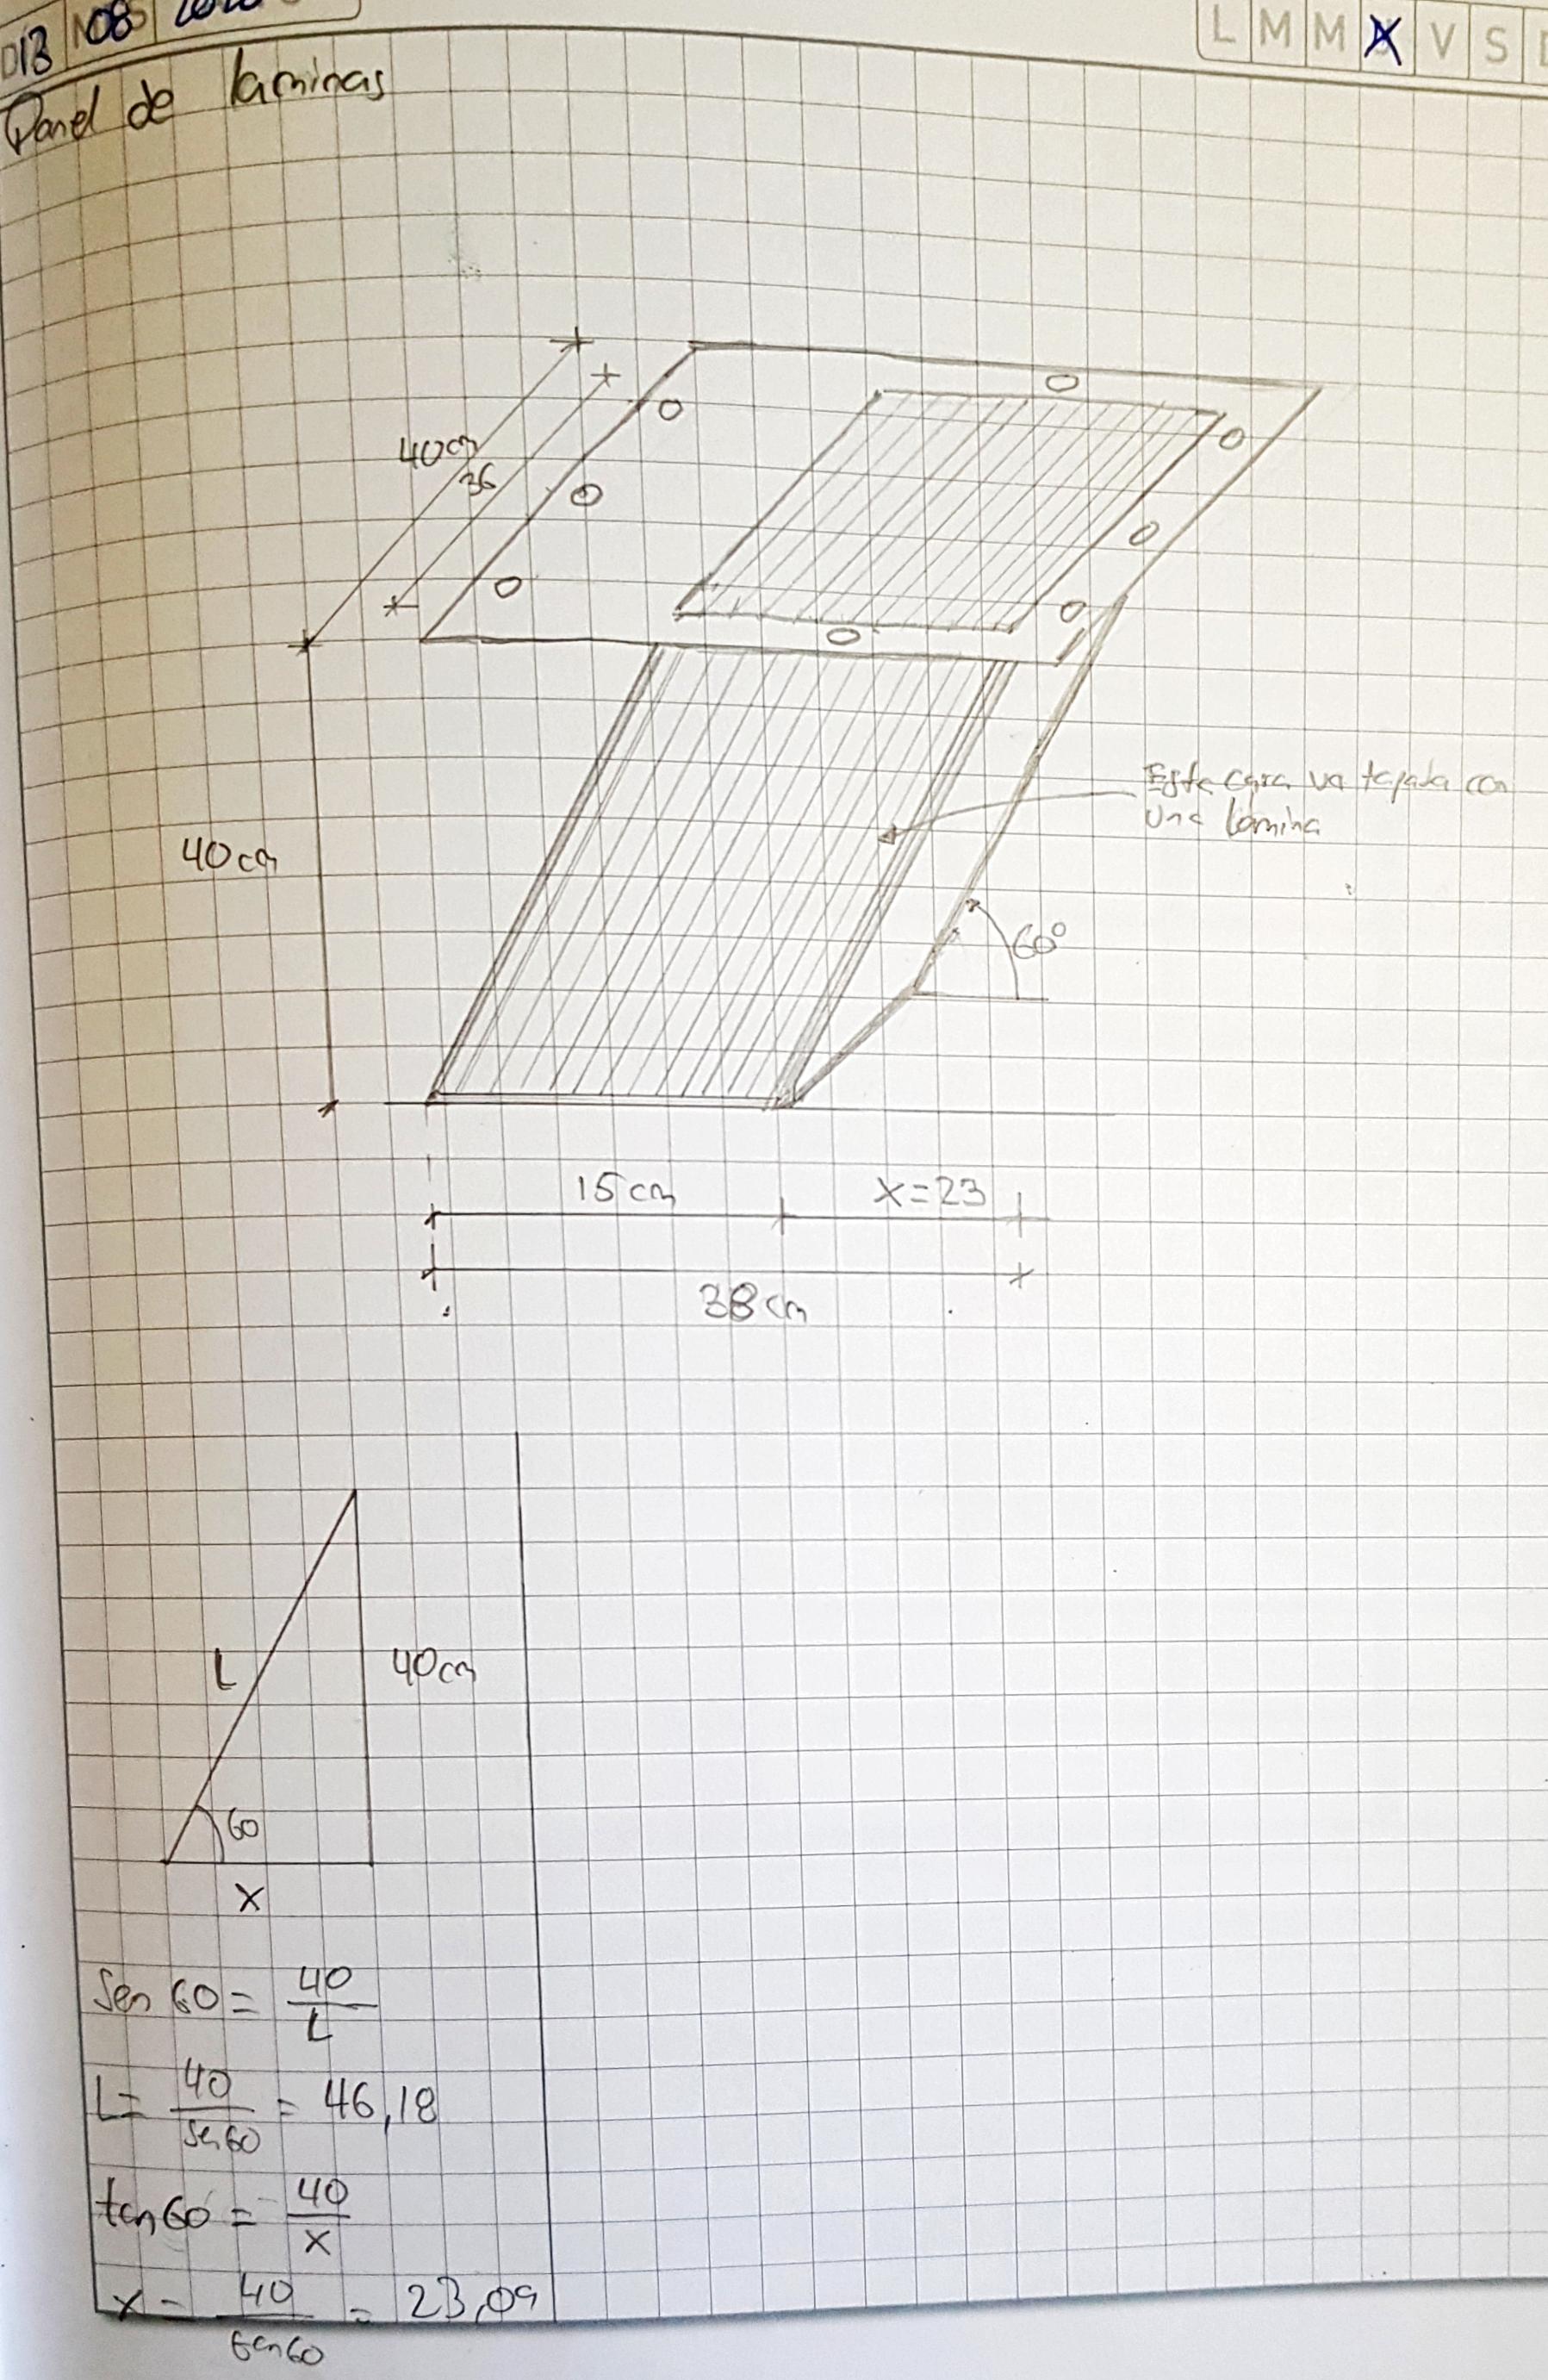 13 08
L M M X V S
Panel de laminas
40cm
36
40cm
Esta cara va tapada con
una lamina
60°
15cm
x=23
38cm
L
40cm
60
x
Sen 60 = 40/L
L = 40/sen60 = 46,18
tan60 = 40/x
x = 40/tan60 = 23,09